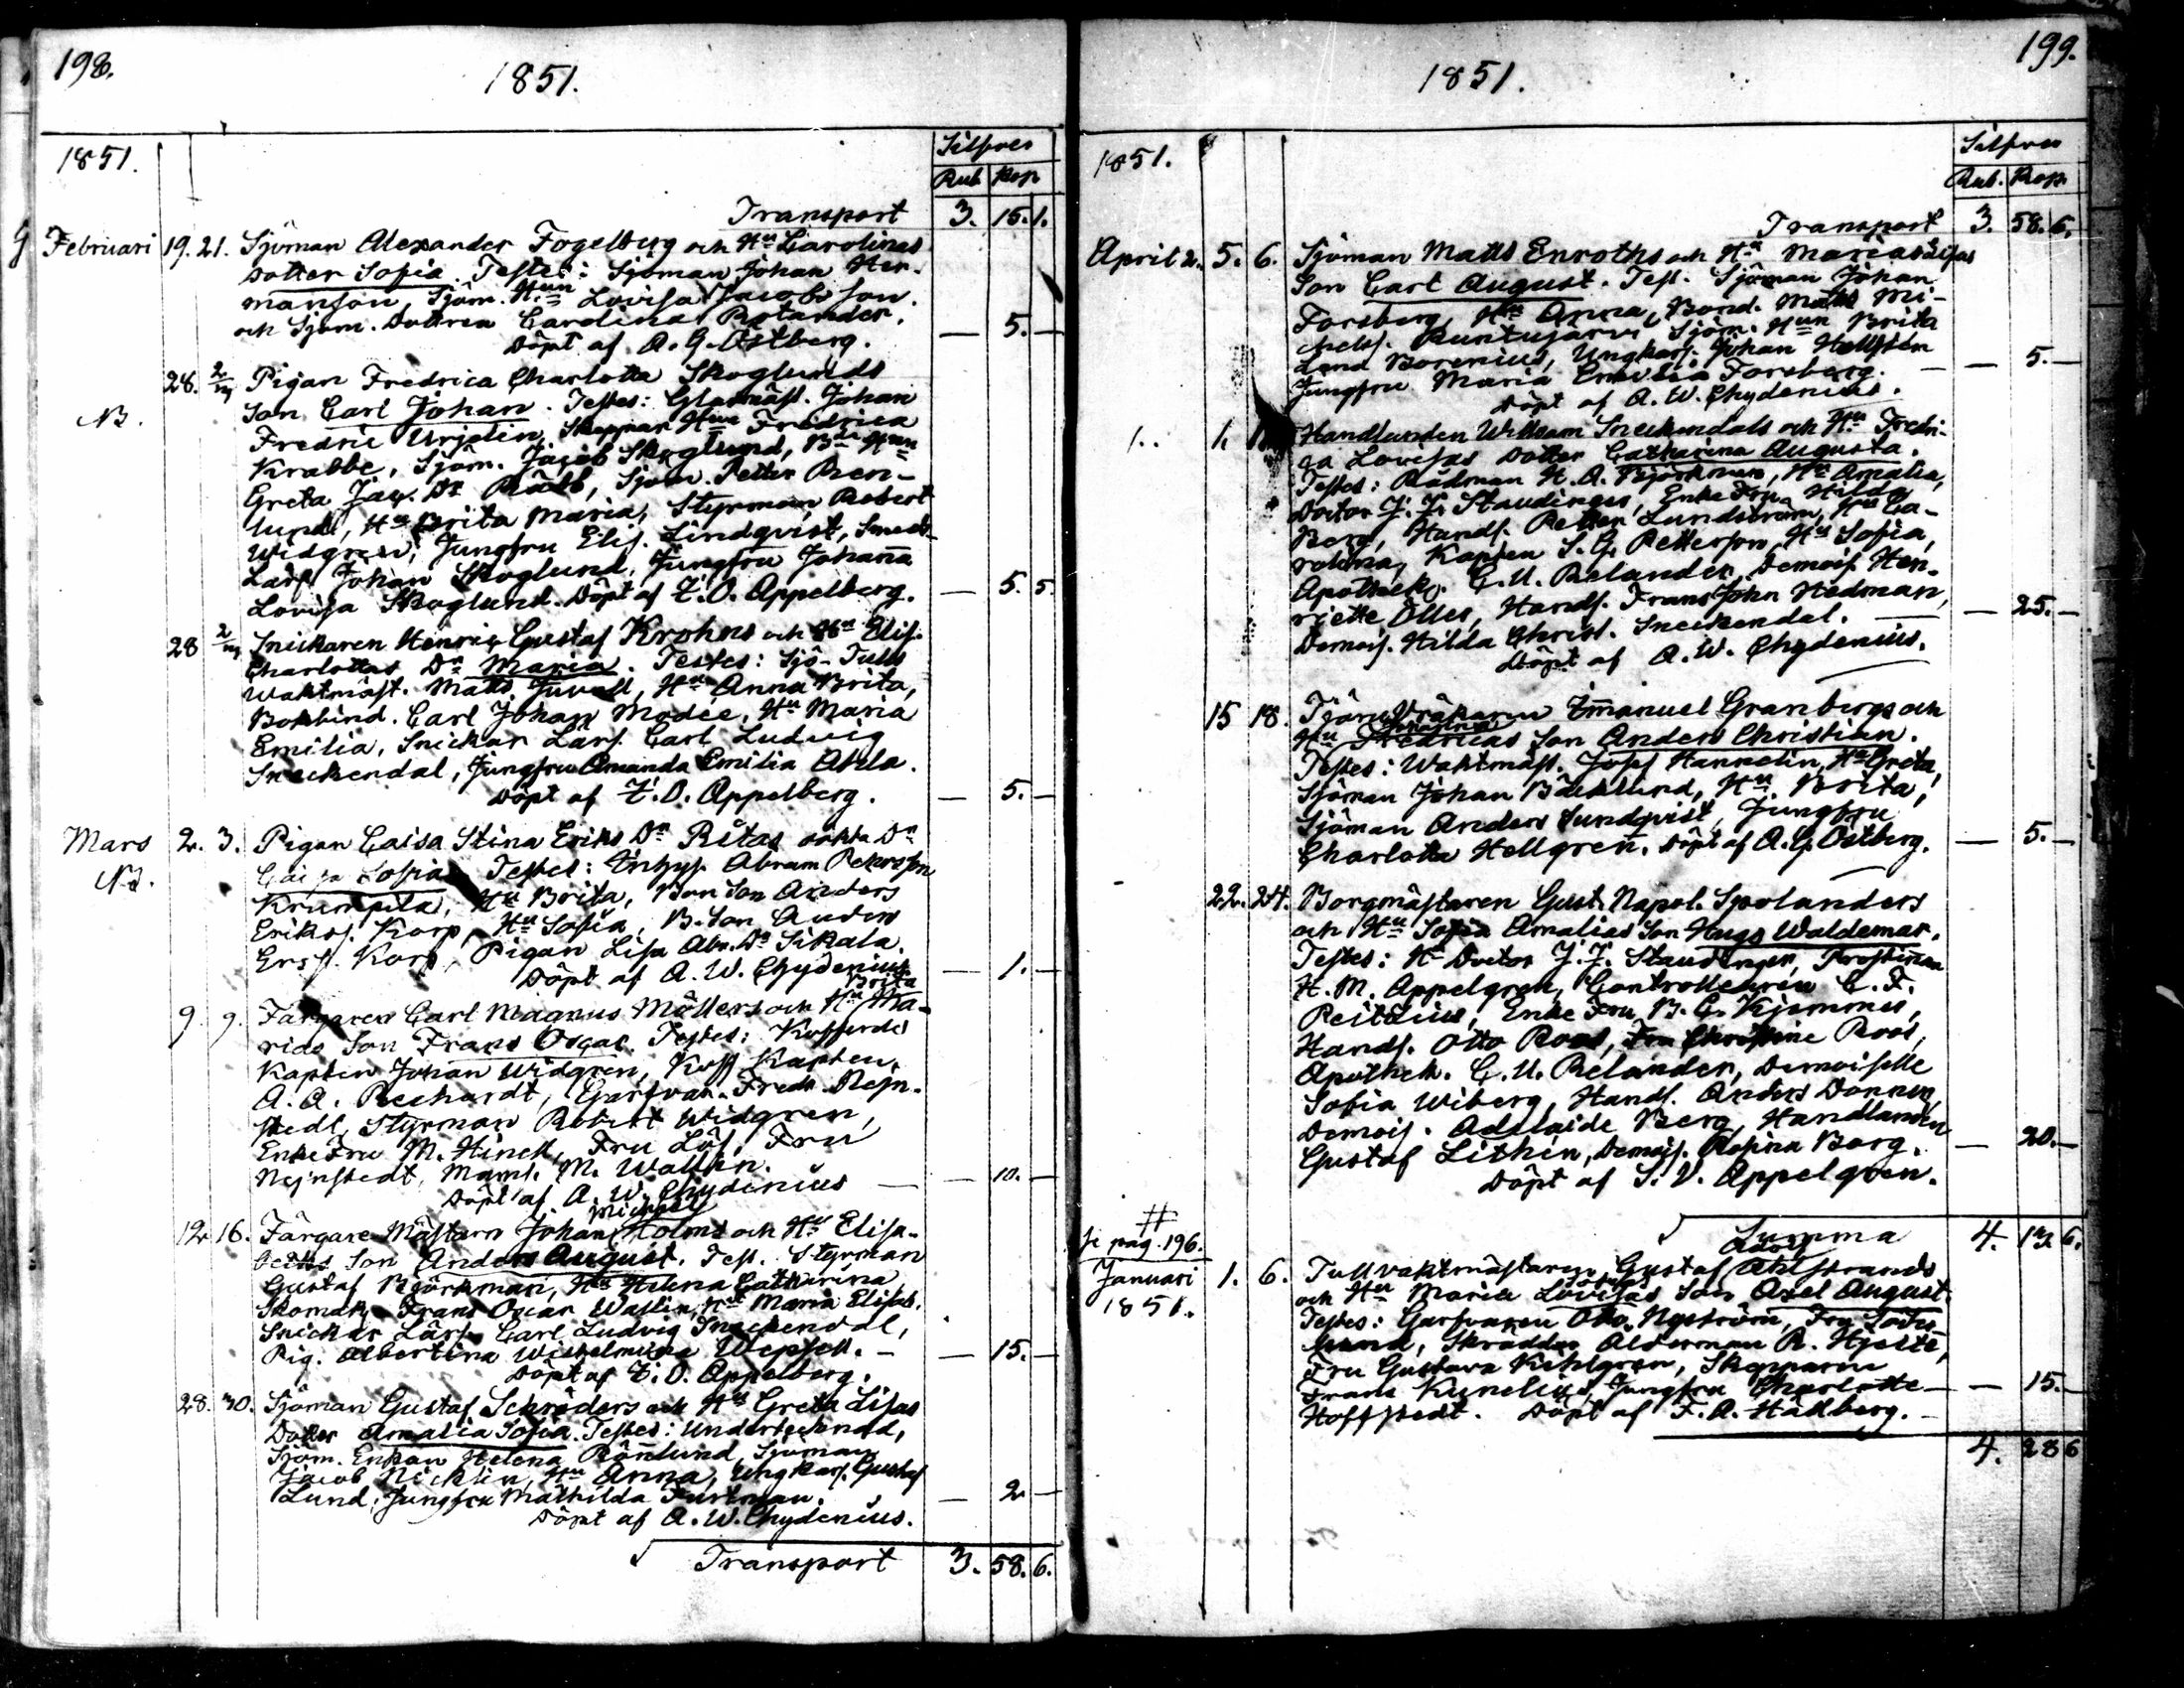 198.
1851.
1851.
Silfver
Rub. Kop.
Transport 3. 15. 1.
G Februari 19. 21. Sjöman Alexander Fogelberg och Hu Carolinas
dotter Sofia. Testes: Sjöman Johan Her-
manson, Sjöm. Hun Lovisa Jacobsson.
och Sjöm. Dottren Carolina Rotander.
Döpt af A. G. Östberg. — 5. —
28. 2/m Pigan Fredrica Charlotta Skoglunds
NB. Son Carl Johan. Testes: Glasmäst. Johan
Fredric Urjelin, Skeppar Hun Fredrica
Krabbe, Sjöm. Jacob Skoglund, Bde Hun
Greta Jac. Dr Rååb, Sjöm. Petter Ren-
lund, Hu Brita Maria, Styrman Robert
Widgren, Jungfru Elis. Lindqvist, Smeds-
Lärl. Johan Skoglund, Jungfru Johanna
Lovisa Skoglund. Döpt af Z. O. Appelberg. — 5. 5.
28 2/m Snickaren Henric Gustaf Krohns och Hu Elis.
Charlottas Dr Maria. Testes: Sjö-Tulls
Waktmäst. Matts Juvall, Hu Anna Brita,
Bokbind. Carl Johan Modée, Hu Maria
Emilia, Snickar Lärl. Carl Ludvig
Sneckendal, Jungfru Amanda Emilia Ahla.
Döpt af Z. O. Appelberg. — 5. —
Mars 2. 3. Pigan Caisa Stina Eriks Dr Ritas oäkta Dr
NB. Caisa Sofia Testes: Inhys. Abram Pehrsson
Krumpila, Hu Brita, Bon Son Anders
Eriks. Korp, Hu Sofia, B. Son Anders
Ersf. Korp, Pigan Lisa Abr. Dr Sikala.
Döpt af A. W. Chydenius — 1. —
Brita
9. 9. Färgaren Carl Magnus Möllers och Hu Ma-
rias Son Frans Oscar. Testes: Kofferdi
Kapten Johan Widgren, Koff Kapten
A. A. Rechardt, Garfvar. Fredr. Nejn-
stedt, Styrman Robert Widgren,
Enke Fru M. Hinell, Fru Löf, Fru
Nejnstedt, Mams. M. Wallin.
Döpt af A. W. Chydenius — — 10. —
Michael
12. 16. Färgare Mästarn Johan Holms och Hu Elisa-
beths Son Anders August. Test. Styrman
Gustaf Björkman, Hu Helena Catharina
Skomak. Frans Oscar Wallin, Hu Maria Elisab.
Snickar Lärl. Carl Ludvig Sneckendal,
Pig. Albertina Wilhelmina Wepsell. — — 15. —
Döpt af Z. O. Appelberg.
28. 30. Sjöman Gustaf Schröders och Hu Greta Lisas
Dotter Amalia Sofia. Testes: Undertecknad,
Sjöm. Enkan Helena Rönnlund, Sjöman
Jacob Nicklin, Hu Anna, Ungkarl. Gustaf
Lund, Jungfru Mathilda Furtman. — 2 —
Döpt af A. W. Chydenius.
Transport 3. 58. 6.
199.
1851.
1851.
Silfver
Rub. Kop.
Transport 3. 58. 6.
April 2. 5. 6. Sjöman Matts Enroths och Hu Maria Lisas
Son Carl August. Test. Sjöman Johan
Forsberg, Hu Anna, Bond. Matts Mi-
chels. Runtujärvi Sjöm. Hun Brita
Lena Borenius, Ungkarl. Johan Hellsten
Jungfru Maria Emilia Forsberg. — — 5. —
Döpt af A. W. Chydenius.
1. Handlanden William Sneckendals och Hu Fredri-
ca Lovisas Dotter Catharina Augusta.
Testes: Rådman H. A. Björkman, Hu Amalia,
Doctor J. J. Staudinger, Enke Fru Hilda
Berg, Handl. Petter Lundström, Hu Ca-
rolina, Kapten S. G. Petterson, Hu Sofia,
Apothek. C. U. Relander, Demois. Hen-
riette Öller, Handl. Frans John Hedman,
Demois. Hilda Christ. Sneckendal. — — 25. —
Döpt af A. W. Chydenius.
15 18. Tjäru Vräkarn Emanuel Granbergs och
Hu Fredricas Son Anders Christian.
Testes: Waktmäst. Josef Hannelin, Hu Greta,
Sjöman Johan Bäcklund, Hu Brita,
Sjöman Anders Sundqvist, Jungfru
Charlotta Hellgren. Döpt af A. G. Östberg. — 5. —
22. 24. Borgmästaren Gust. Napol. Spolanders
och Hu Sofia Amalias Son Hugo Waldemar.
Testes: Hr Doctor J. J. Staudinger, Prostinnan
H. M. Appelgren, Controlleuren C. F.
Reitzius, Enke Fru B. C. Kjemmer,
Handl. Otto Roos, Fru Christine Roos,
Apothek. C. U. Relander, Demoiselle
Sofia Wiberg, Handl. Anders Donner,
Demois. Adelaide Berg, Handlanden
Gustaf Lithén, Demois. Rosina Borg. — 20. —
Döpt af S. V. Appelgren.
Summa 4. 13. 6.
#
se pag. 196.
Adolf
Januari 1. 6. Tullvaktmästaren Gustaf Ahlstrands
1851. och Hu Maria Lovisas Son Axel August.
Testes: Garfvaren Otto Nyström, Fru
Skräddar Olderman R. Hjelte,
Fru Gustava Kihlgren, Skepparen
Frans Kunelius, Jungfru Charlotte — — 15. —
Hoffstedt. Döpt af F. A. Hällberg. —
4. 28 6